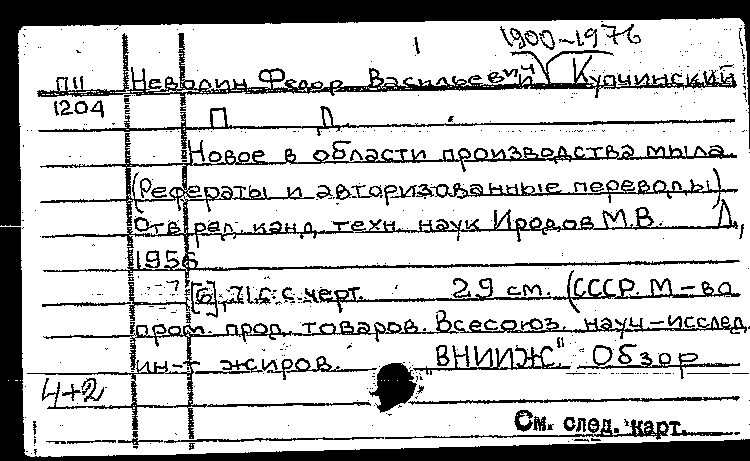 1900-1976
1
П11 Неволин Федор Васильевич Купчинский
1204
П. Д.
Новое в области производства мыла.
(Рефераты и авторизованные переводы)
Отв. ред. канд. техн. наук Иродов М.В. Л.,
1956
[6], 71 с. с черт. 29 см. (СССР. М-во
пром. прод. товаров. Всесоюз. науч-исслед.
ин-т жиров. "ВНИИЖ." Обзор
4+2
См. след. карт.